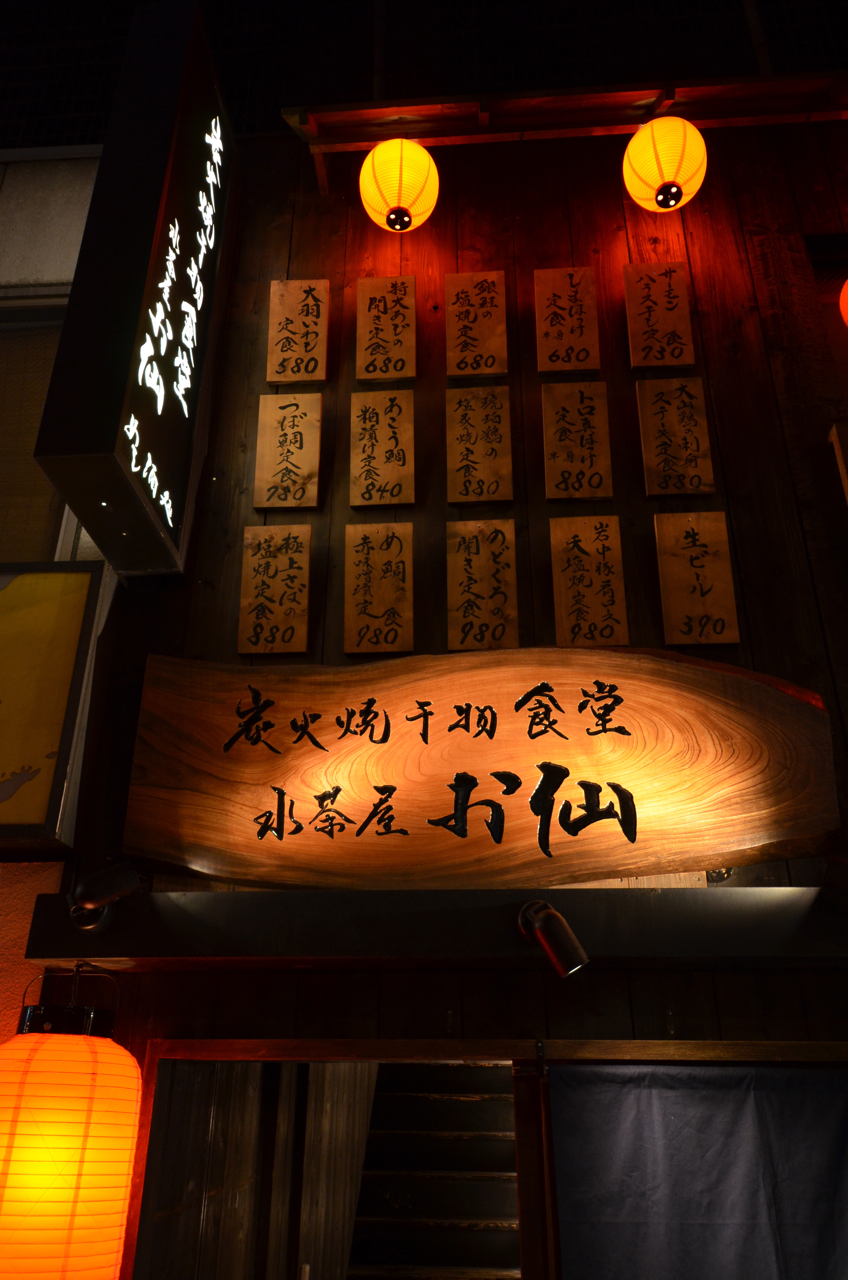 炭火焼干物食堂
お仙
めし 酒 処
大羽いわし
定食
580
特大あじの
開き定食
680
銀鮭の
塩焼定食
680
しまほっけ
定食
半身
680
サーモン
ハラス干し定食
730
つぼ鯛定食
780
あこう鯛
粕漬け定食
840
琥珀鶏の
塩炭焼定食
880
トロ真ほっけ
定食
半身
880
大山鶏の刺身
定食
880
極上さばの
塩焼定食
880
め鯛の
赤味噌漬定食
980
のどぐろの
開き定食
980
岩中豚肩ロース
天塩焼定食
980
生ビール
390
炭火焼干物食堂
水茶屋 お仙